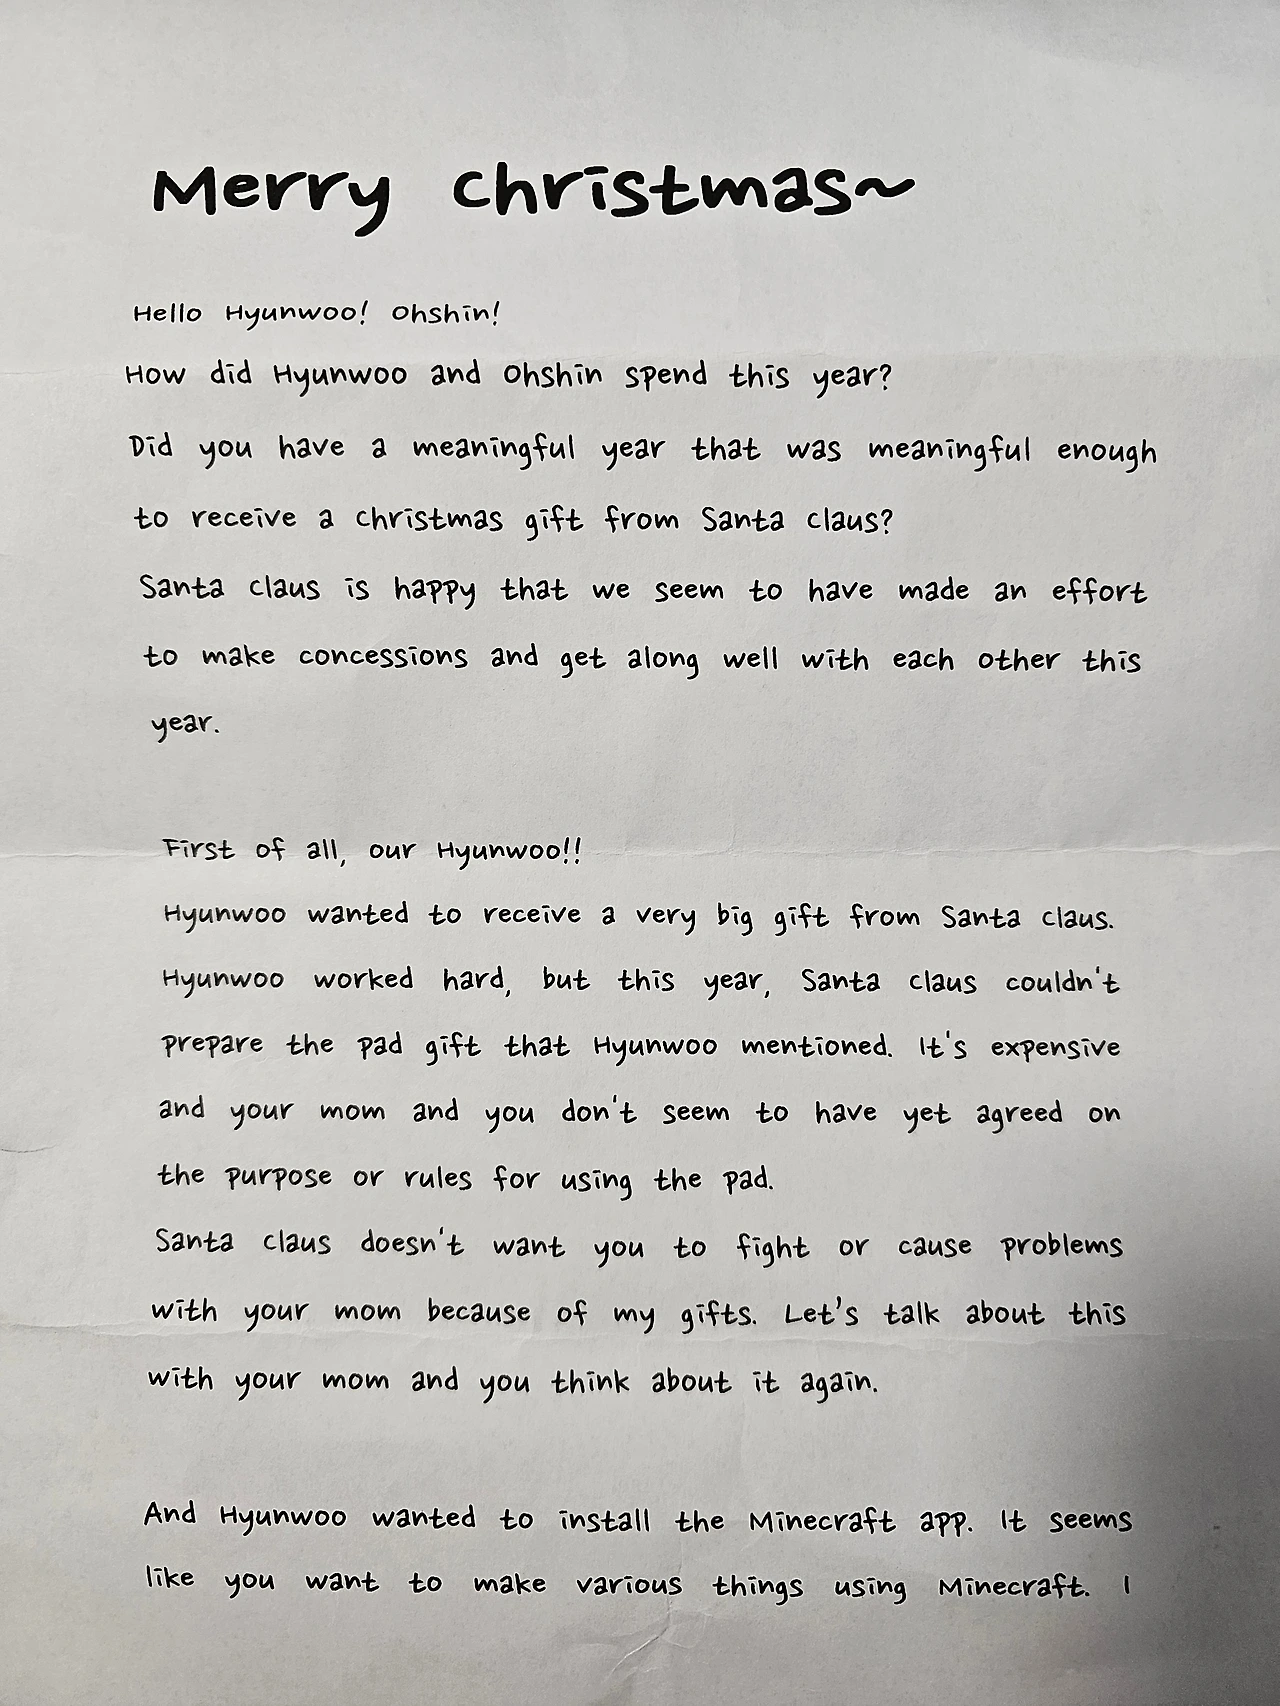 Merry Christmas~
Hello Hyunwoo! Ohshin!
How did Hyunwoo and Ohshin spend this year?
Did you have a meaningful year that was meaningful enough
to receive a Christmas gift from Santa Claus?
Santa Claus is happy that we seem to have made an effort
to make concessions and get along well with each other this
year.
First of all, our Hyunwoo!!
Hyunwoo wanted to receive a very big gift from Santa Claus.
Hyunwoo worked hard, but this year, Santa Claus couldn't
prepare the pad gift that Hyunwoo mentioned. It's expensive
and your mom and you don't seem to have yet agreed on
the purpose or rules for using the pad.
Santa Claus doesn't want you to fight or cause problems
with your mom because of my gifts. Let's talk about this
with your mom and you think about it again.
And Hyunwoo wanted to install the Minecraft app. It seems
like you want to make various things using Minecraft. I